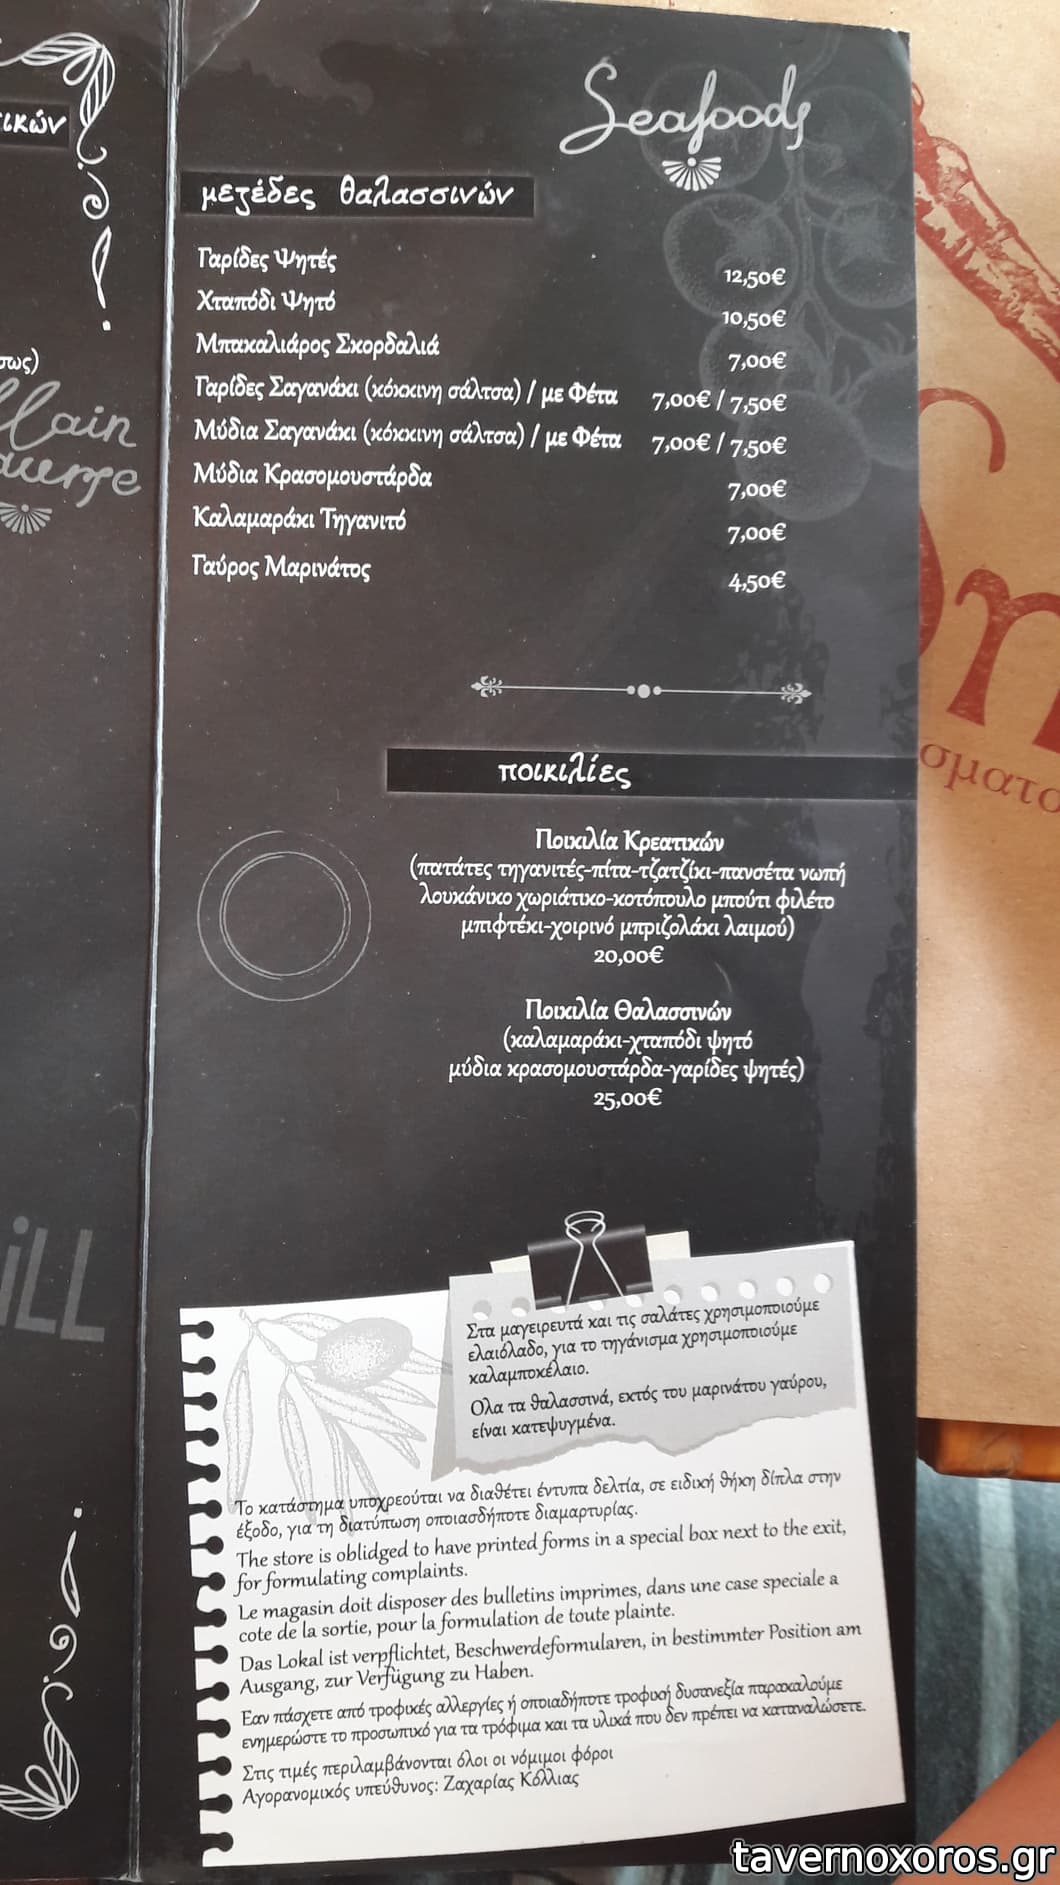 ικών
Seafoods
μεζέδες θαλασσινών
Γαρίδες Ψητές 12,50€
Χταπόδι Ψητό 10,50€
Μπακαλιάρος Σκορδαλιά 7,00€
Γαρίδες Σαγανάκι (κόκκινη σάλτσα) / με Φέτα 7,00€ / 7,50€
Μύδια Σαγανάκι (κόκκινη σάλτσα) / με Φέτα 7,00€ / 7,50€
Μύδια Κρασομουστάρδα 7,00€
Καλαμαράκι Τηγανιτό 7,00€
Γαύρος Μαρινάτος 4,50€
ποικιλίες
Ποικιλία Κρεατικών
(πατάτες τηγανιτές-πίτα-τζατζίκι-πανσέτα νωπή
λουκάνικο χωριάτικο-κοτόπουλο μπούτι φιλέτο
μπιφτέκι-χοιρινό μπριζολάκι λαιμού)
20,00€
Ποικιλία Θαλασσινών
(καλαμαράκι-χταπόδι ψητό
μύδια κρασομουστάρδα-γαρίδες ψητές)
25,00€
Στα μαγειρευτά και τις σαλάτες χρησιμοποιούμε
ελαιόλαδο, για το τηγάνισμα χρησιμοποιούμε
καλαμποκέλαιο.
Ολα τα θαλασσινά, εκτός του μαρινάτου γαύρου,
είναι κατεψυγμένα.
Το κατάστημα υποχρεούται να διαθέτει έντυπα δελτία, σε ειδική θήκη δίπλα στην
έξοδο, για τη διατύπωση οποιασδήποτε διαμαρτυρίας.
The store is oblidged to have printed forms in a special box next to the exit,
for formulating complaints.
Le magasin doit disposer des bulletins imprimes, dans une case speciale a
cote de la sortie, pour la formulation de toute plainte.
Das Lokal ist verpflichtet, Beschwerdeformularen, in bestimmter Position am
Ausgang, zur Verfügung zu Haben.
Εαν πάσχετε από τροφικές αλλεργίες ή οποιαδήποτε τροφική δυσανεξία παρακαλούμε
ενημερώστε το προσωπικό για τα τρόφιμα και τα υλικά που δεν πρέπει να καταναλώσετε.
Στις τιμές περιλαμβάνονται όλοι οι νόμιμοι φόροι
Αγορανομικός υπεύθυνος: Ζαχαρίας Κόλλιας
tavernoxoros.gr